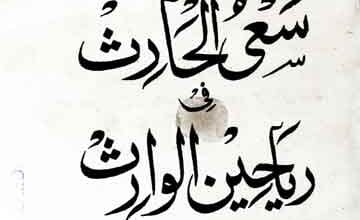 سَعْىُ الْحَارِث
فِى
رِيَاحِيْنِ الْوارِث